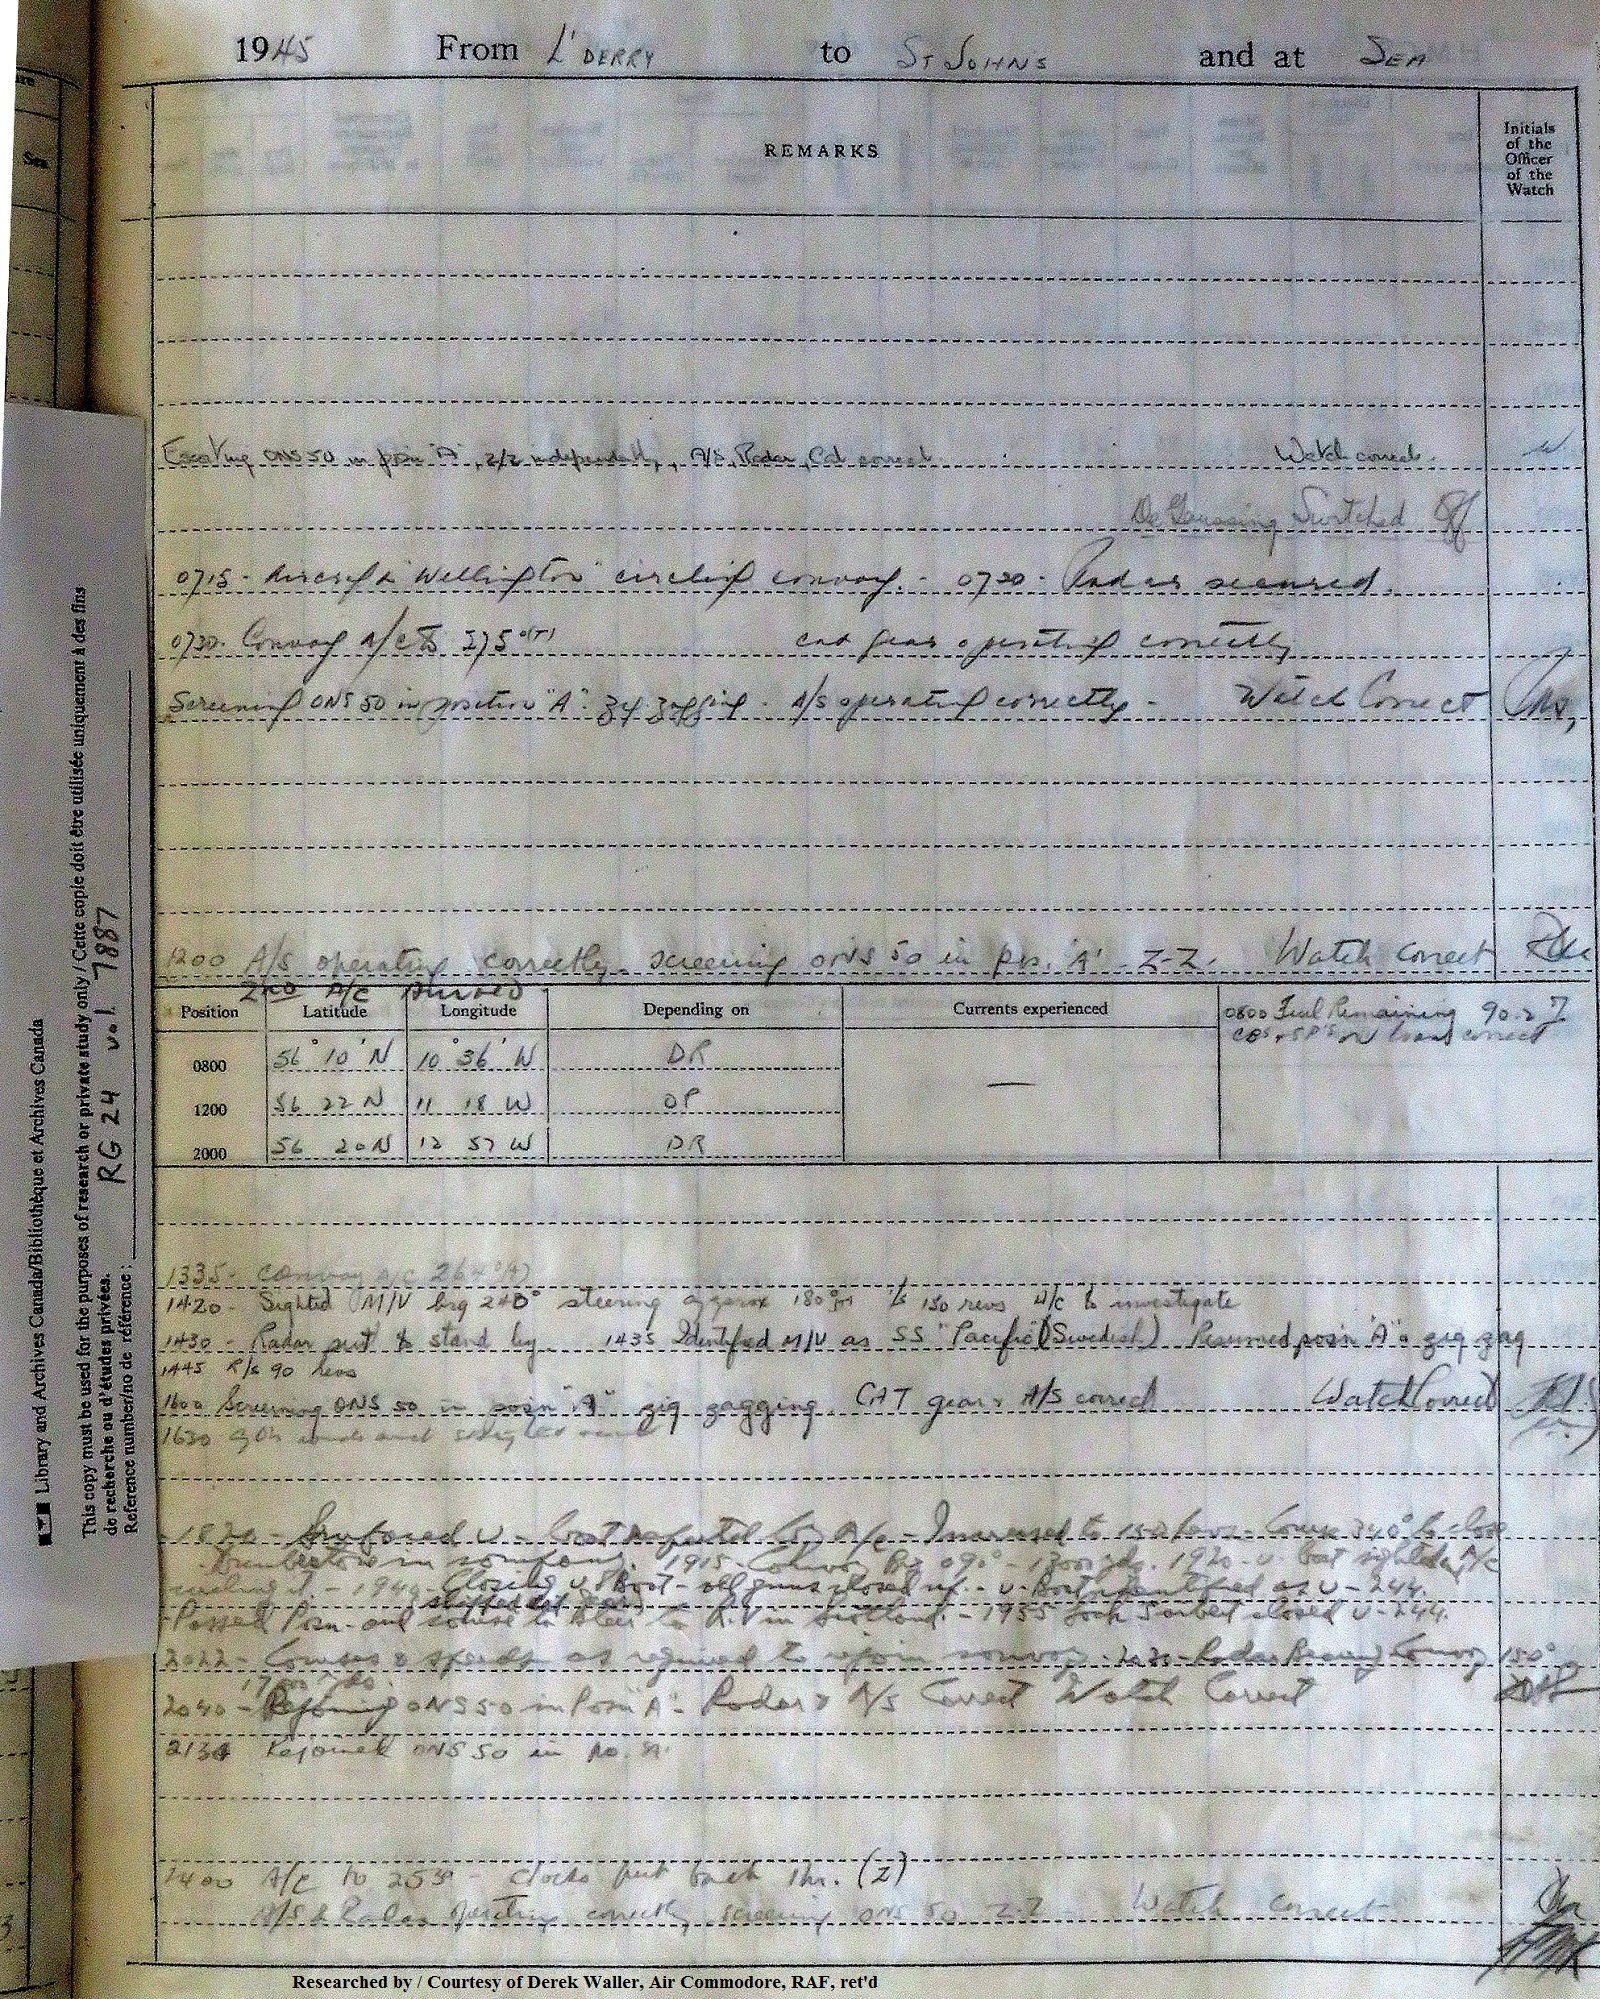 1945 From L'DERRY to ST JOHNS and at SEA
REMARKS
Initials
of the
Officer
of the
Watch
Escorting ONS 50 in posn "A", z/z independently, A/S, Radar, Cat correct. Watch correct.
DeGaussing Switched Off
0715 - Aircraft "Wellington" circling convoy. - 0720 - Radar secured.
0730. Convoy A/C to 275°(T) cat gear operating correctly
Screening ONS 50 in position "A". zig zagging - A/S operating correctly - Watch Correct
1200 A/S operating correctly. screening ONS 50 in pos. 'A' - Z-Z. Watch correct
2nd A/C
Position Latitude Longitude Depending on Currents experienced
0800 Fuel Remaining 90.2 T
correct
0800 56° 10' N 10° 36' W DR
1200 56 22 N 11 18 W OP
2000 56 20 N 12 57 W DR
—
1335 - Convoy A/C 264°
1420 - Sighted M/V brg 240° steering approx 180° 150 revs A/C to investigate
1430 - Radar set to stand by. 1435 Identified M/V as SS "Pacific" (Swedish) Resumed posn "A" zig zag
1445 R/S 90 revs
1600 Screening ONS 50 in posn "A" zig zagging. CAT gear & A/S correct Watch Correct
1630
1820 - Surfaced U-boat reported by A/C - Increased to 150 revs - Course 340° to close
in company. 1915 - Convoy Brg 090° - 13000 yds. 1920 - U-boat sighted, A/C
circling it. - 1940 - Closing U-Boat - all guns closed up. - U-Boat identified as U-244.
Passed Posn. and course to steer to in Scotland. - 1955 closed U-244.
2022 - Courses & speeds as required to rejoin convoy. Radar Bearing Convoy 150°
2040 - Rejoining ONS 50 in Posn "A". Radar & A/S Correct Watch Correct
2134 Rejoined ONS 50 in po. "A"
A/C to 253° - clocks put back 1hr. (Z)
A/S & Radar operating correctly, screening ONS 50 Z-Z Watch correct
Library and Archives Canada/Bibliothèque et Archives Canada
This copy must be used for the purposes of research or private study only / Cette copie doit être utilisée uniquement à des fins
de recherche ou d'études privées.
Reference number/no de référence : RG 24 vol. 7887
Researched by / Courtesy of Derek Waller, Air Commodore, RAF, ret'd